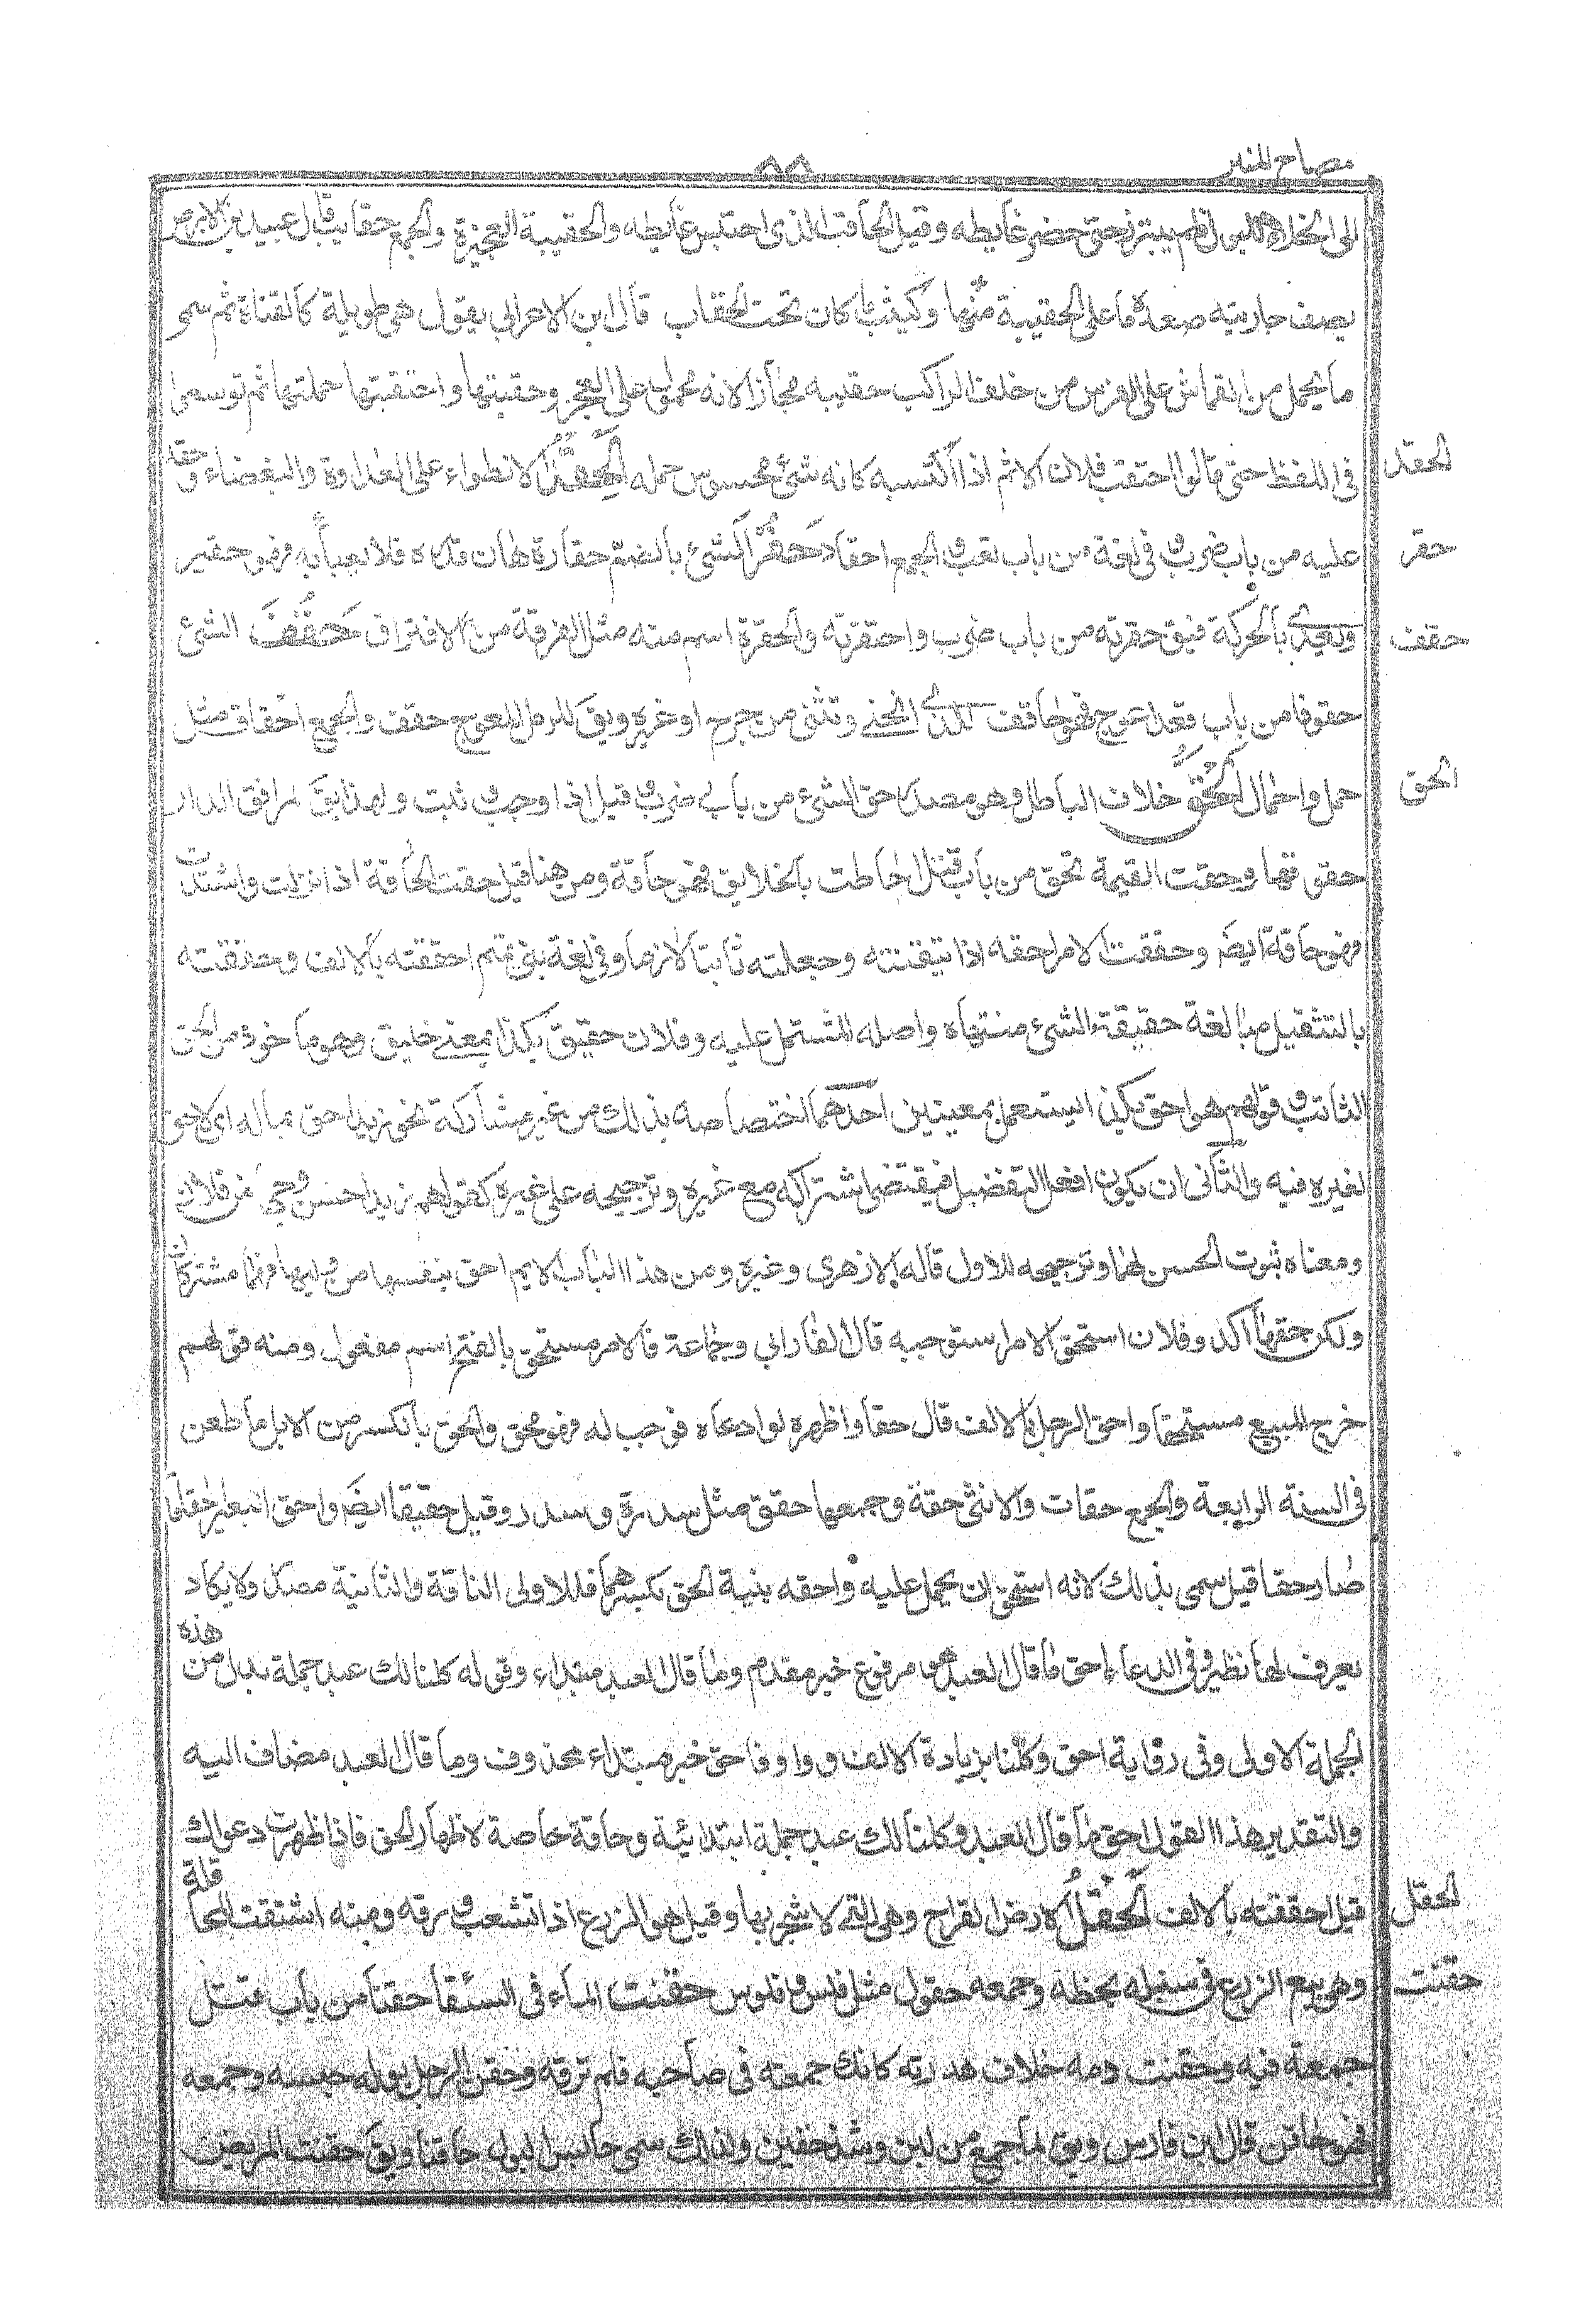 مصباح المنير
٨٨
الى الخلاء للبول فلم يتبرز حتى حضر غايطه وقيل الحاقب الذى احتبس غايطه والحقيبة العجيزة والجمع حقايب قال عبيد بن الابرص
يصف جاريته صعدة ما على الحقيبة منها وكثيب ما كان تحت الحقاب قال ابن الاعرابي يقول هى طويلة كالقناة ثم سمى
ما يحمل من القماش على الفرس من خلف الراكب حقيبه مجازا لانه محمول على العجز وحقبتها واحتقبتها حملتها ثم توسعوا
فى اللفظ حتى قالوا احتقب فلان الاثم اذا اكتسبه كانه شئ محسوس حمله الحقد الانطواء على العداوة والبغضاء وحقد
الحقد
عليه من باب ضرب وفى لغة من باب تعب والجمع احقاد حقر الشئ بالضم حقارة هان قدره فلا يعبأ به فهو حقير
حقر
ويعدى بالحركة فيق حقرته من باب ضرب واحتقرته والحقرة اسم منه مثل الفرقة من الافتراق حقف الشئ
حقف
حقوفا من باب قعد اعوج فهو حاقف للذى انحنى وتثنى من جرح او غيره ويق للرمل المعوج حقف والجمع احقاف مثل
حمل واحمال الحق خلاف الباطل وهو مصدر حق الشئ من بابي ضرب وقتل اذا وجب وثبت ولهذا يق لمرافق الدار
الحق
حقوقها وحقت القيمة تحق من باب قتل احاطت بالخلايق فهى حاقة ومن هنا قيل حقت الحاقة اذا نزلت واشتدت
فهى حاقة ايضا وحققت الامر احقه اذا تيقنته وجعلته ثابتا لازما وفى لغة بنى تميم احققته بالالف وحققته
بالتثقيل مبالغة حقيقة الشئ منتهاه واصله المشتمل عليه وفلان حقيق بكذا بمعنى خليق وهو ماخوذ من الحق
الثابت وقولهم هو احق بكذا يستعمل بمعنيين احدهما اختصاصه بذلك من غير مشاركة نحو زيد احق بماله اى لا حق
لغيره فيه والثانى ان يكون افعل التفضيل فيقتضى اشتراكه مع غيره وترجيحه على غيره كقولهم زيد احسن وجها من فلان
ومعناه ثبوت الحسن لهما وترجيحه للاول قاله الازهرى وغيره ومن هذا الباب الايم احق بنفسها من وليها فهما مشتركان
ولكن حقها آكد وفلان استحق الامر استوجبه قال الفارابي وجماعة فالامر مستحق بالفتح اسم مفعول ومنه قولهم
خرج المبيع مستحقا واحق الرجل بالالف قال حقا واظهره او ادعاه فوجب له فهو محق والحق بالكسر من الابل ما طعن
فى السنة الرابعة والجمع حقات والانثى حقة وجمعها حقق مثل سدرة وسدر وقيل حقيقا ايضا واحق البعير احقاقا
صار حقا قيل سمى بذلك لانه استحق ان يحمل عليه واحقه بنية الحق بكسرهما فللاولى الناقة والثانية مصدر ولا يكاد
يعرف لها نظير وفى الدعاء احق ما قال العبد هو مرفوع خبر مقدم وما قال العبد مبتداء وقوله كلنا لك عبد جملة بدل من هذه
الجملة الاولى وفى رواية احق وكلنا بزيادة الالف وواو فاحق خبر مبتداء محذوف وما قال العبد مضاف اليه
والتقدير هذا القول احق ما قال العبد وكلنا لك عبد جملة ابتدائية وحاقة خاصة لاظهار الحق فاذا ظهرت دعواك
قيل احققته بالالف الحقل الارض القراح وهى التى لا شجر بها وقيل هو الزرع اذا تشعب ورقه ومنه اشتقت المحاقلة
الحقل
وهى بيع الزرع فى سنبله بحنطة وجمعه حقول مثل فلس وفلوس حقنت الماء فى السقا حقنا من باب قتل
حقنت
جمعة فيه وحقنت دمه خلاف هدرته كانك جمعته فى صاحبه فلم ترقه وحقن الرجل بوله حبسه وجمعه
فهو حاقن قال ابن فارس ويق لما جمع من لبن وشد حقين ولذلك سمى حابس البول حاقنا ويق حقنت المريض